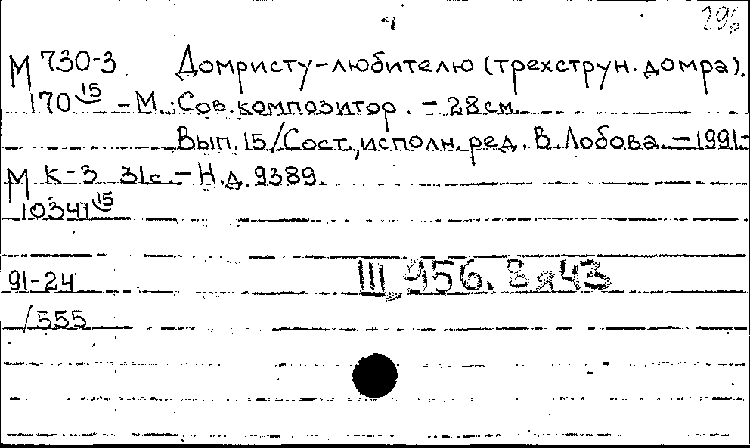 296
М 730-3 Домристу-любителю (трехструн. домра).
170 15 - М.: Сов. композитор. - 28 см.
Вып. 15 / Сост., исполн. ред. В. Лобова. - 1991.-
М К-3 31 с. - Н.д. 9389.
10341 15
91-24 Щ 956.8я43
/555